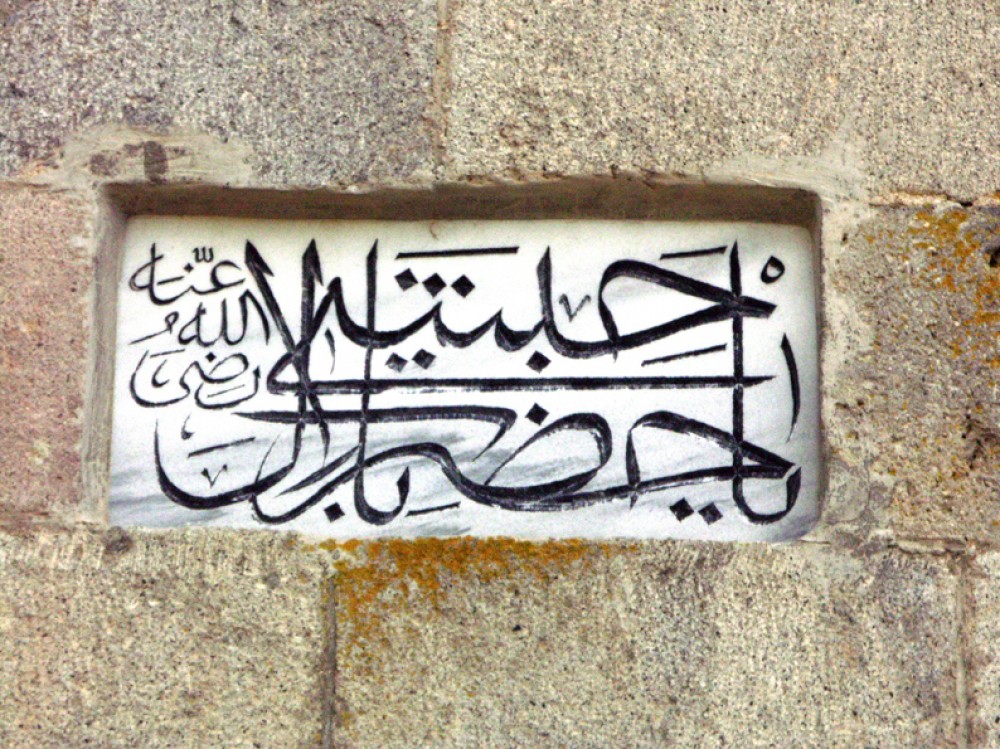 يا حضرت بلال حبشى
رضى الله عنه